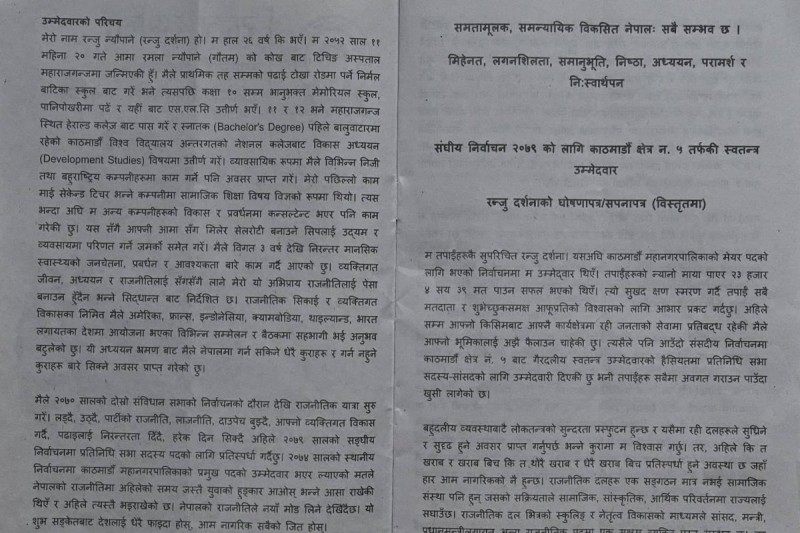 उम्मेदवारको परिचय
मेरो नाम रन्जु न्यौपाने (रन्जु दर्शना) हो। म हाल २६ वर्ष कि भएँ। म २०५२ साल ११
महिना २० गते आमा रमला न्यौपाने (गौतम) को कोख बाट टिचिङ अस्पताल
महाराजगन्जमा जन्मिएकी हूँ। मैले प्राथमिक तह सम्मको पढाई टोखा रोडमा पर्ने निर्मल
बाटिका स्कुल बाट गरें भने त्यसपछि कक्षा १० सम्म भानुभक्त मेमोरियल स्कुल,
पानिपोखरीमा पढें र यहीं बाट एस.एल.सि उत्तीर्ण भएँ। ११ र १२ भने महाराजगन्ज
स्थित हेराल्ड कलेज बाट पास गरें र स्नातक (Bachelor's Degree) पहिले बालुवाटारमा
रहेको काठमाडौं विश्व विद्यालय अन्तरगतको नेशनल कलेजबाट विकास अध्ययन
(Development Studies) विषयमा उत्तीर्ण गरें। व्यावसायिक रूपमा मैले विभिन्न निजी
तथा बहुराष्ट्रिय कम्पनीहरुमा काम गर्ने पनि अवसर प्राप्त गरें। मेरो पछिल्लो काम
माई सेकेन्ड टिचर भन्ने कम्पनीमा सामाजिक शिक्षा विषय विज्ञको रूपमा थियो। त्यस
भन्दा अघि म अन्य कम्पनीहरुको विकास र प्रवर्धनमा कन्सल्टेन्ट भएर पनि काम
गरेकी छु। यस सँगै आफ्नी आमा सँग मिलेर सेलरोटी बनाउने सिपलाई उद्यम र
व्यवसायमा परिणत गर्ने जमर्को समेत गरें। मैले विगत ३ वर्ष देखि निरन्तर मानसिक
स्वास्थ्यको जनचेतना, प्रबर्धन र आवश्यकता बारे काम गर्दै आएको छु। व्यक्तिगत
जीवन, अध्ययन र राजनीतिलाई सँगसँगै लाने मेरो यो अभिप्राय राजनीतिलाई पेसा
बनाउन हुँदैन भन्ने सिद्धान्त बाट निर्देशित छ। राजनीतिक सिकाई र व्यक्तिगत
विकासका निमित्त मैले अमेरिका, फ्रान्स, इन्डोनेसिया, क्याम्बोडिया, थाइल्यान्ड, भारत
लगायतका देशमा आयोजना भएका विभिन्न सम्मेलन र बैठकमा सहभागी भई अनुभव
बटुलेको छु। यो अध्ययन भ्रमण बाट मैले नेपालमा गर्न सकिने धेरै कुराहरू र गर्न नहुने
कुराहरू बारे सिक्ने अवसर प्राप्त गरेको छु।
मैले २०७० सालको दोस्रो संविधान सभाको निर्वाचनको दौरान देखि राजनीतिक यात्रा सुरु
गरें। लड्दै, उठ्दै, पार्टीको राजनीति, लाजनीति, दाउपेच बुझ्दै, आफ्नो व्यक्तिगत विकास
गर्दै, पढाइलाई निरन्तरता दिँदै, हरेक दिन सिक्दै अहिले २०७९ सालको सङ्घीय
निर्वाचनमा प्रतिनिधि सभा सदस्य पदको लागि प्रतिस्पर्धा गर्दैछु। २०७४ सालको स्थानीय
निर्वाचनमा काठमाडौं महानगरपालिकाको प्रमुख पदको उम्मेदवार भएर ल्याएको मतले
नेपालको राजनीतिमा अहिलेको समय जस्तै युवाको हुङ्कार आओस् भन्ने आसा राखेकी
थिएँ र अहिले त्यस्तै भइराखेको छ। नेपालको राजनीतिले नयाँ मोड लिने देखिँदैछ। यो
शुभ सङ्केतबाट देशलाई धेरै फाइदा होस्, आम नागरिक सबैको जित होस्।
समतामूलक, समन्यायिक विकसित नेपालः सबै सम्भव छ ।
मिहेनत, लगनशिलता, समानुभूति, निष्ठा, अध्ययन, परामर्श र
निःस्वार्थपन
संघीय निर्वाचन २०७९ को लागि काठमाडौं क्षेत्र नं. ५ तर्फकी स्वतन्त्र
उम्मेदवार
रन्जु दर्शनाको घोषणापत्र/सपनापत्र (विस्तृतमा)
म तपाईंहरूकै सुपरिचित रन्जु दर्शना। यसअघि काठमाडौं महानगरपालिकाको मेयर पदको
लागि भएको निर्वाचनमा म उम्मेदवार थिएँ। तपाईंहरूको न्यानो माया पाएर २३ हजार
४ सय ३९ मत पाउन सफल भएको थिएँ। त्यो सुखद क्षण स्मरण गर्दै तपाईं सबै
मतदाता र शुभेच्छुकसमक्ष आफूप्रतिको विश्वासको लागि आभार प्रकट गर्दछु। अहिले
सम्म आफ्नो किसिमबाट आफ्नै कार्यक्षेत्रमा रही जनताको सेवामा प्रतिबद्ध रहेकी मैले
आफ्नो भूमिकालाई अझै फैलाउन चाहेकी छु। त्यसैले पनि आउँदो संसदीय निर्वाचनमा
काठमाडौं क्षेत्र नं. ५ बाट गैरदलीय स्वतन्त्र उम्मेदवारको हैसियतमा प्रतिनिधि सभा
सदस्य-सांसदको लागि उम्मेदवारी दिएकी छु भनी तपाईंहरू सबैमा अवगत गराउन पाउँदा
खुसी लागेको छ।
बहुदलीय व्यवस्थाबाटै लोकतन्त्रको सुन्दरता प्रस्फुटन हुन्छ र यसैमा रही दलहरूले सुध्रिने
र सुदृढ हुने अवसर प्राप्त गर्नुपर्छ भन्ने कुरामा म विश्वास गर्छु। तर, अहिले कि त
खराब र खराब बिच कि त थोरै खराब र धेरै खराब बिच प्रतिस्पर्धा हुने अवस्था छ जहाँ
हार आम नागरिकको नै हुन्छ। राजनीतिक दलहरू एक सङ्गठन मात्र नभई सामाजिक
संस्था पनि हुन् जसको सक्रियताले सामाजिक, सांस्कृतिक, आर्थिक परिवर्तनमा राज्यलाई
सघाउँछ। राजनीतिक दल भित्रको स्कुलिङ र नेतृत्व विकासको माध्यमले सांसद, मन्त्री,